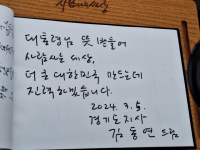 대통령님 뜻 받들어
사람사는 세상,
더 큰 대한민국 만드는데
진력하겠습니다.
2024. 3. 5.
경기도지사
김동연 드림